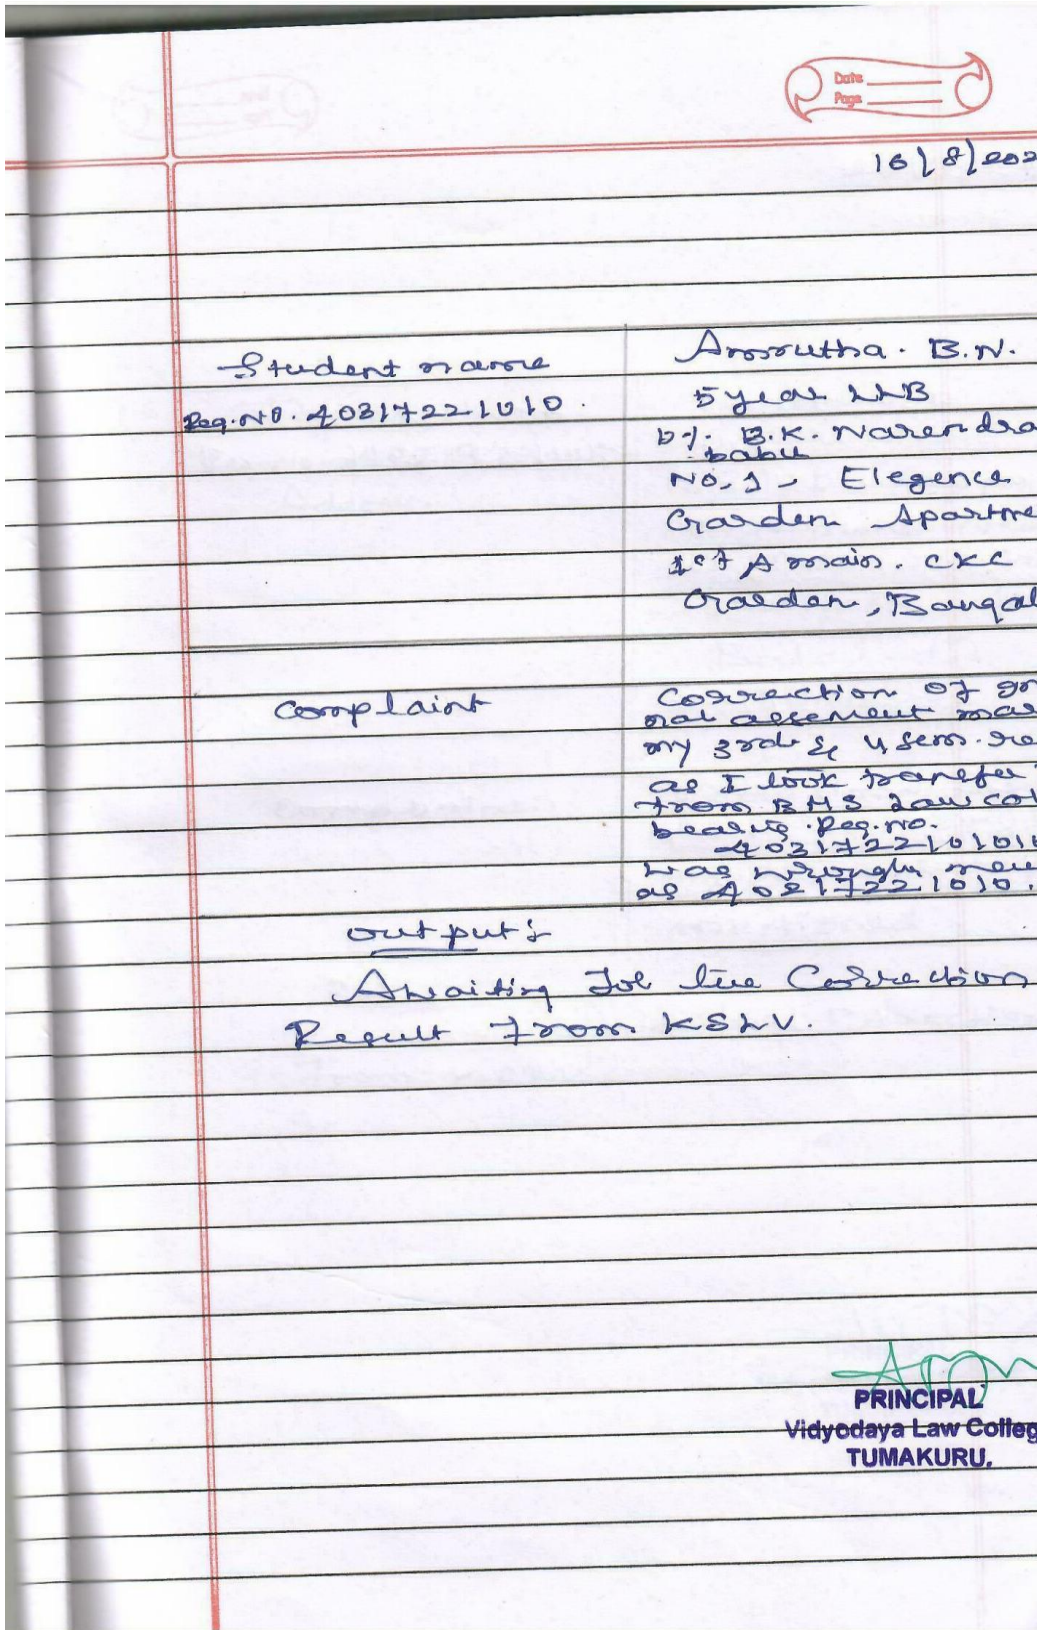 Date
Page
16/8/202
Student name
Reg.No. 40317221010.
Amrutha. B.N.
5 year LLB
D/. B.K. Narendra
babu
No, 1, Elegence
Garden Apartme
1st A main. CKC
Garden, Bangal
Complaint
Correction of
nal assement mar
my 3rd & 4 sem. re
as I took transfer
from BMS Law col
bearing Reg.no.
was wrongly men
output:
Awaiting for the Correction
Result from KSLU.
PRINCIPAL
Vidyodaya Law Colleg
TUMAKURU.